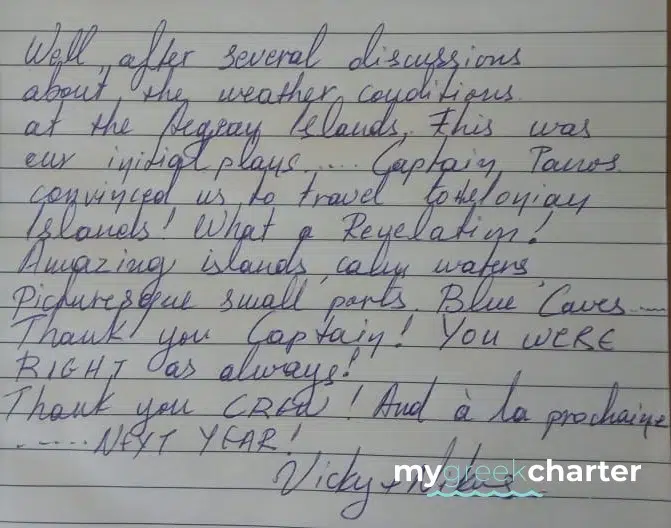 Well, after several discussions
about the weather conditions
at the Aegean Islands, This was
our initial plans..... Captain Panos
convinced us to travel to Ionian
Islands! What a Revelation!
Amazing islands, calm waters,
Picturesque small ports, Blue Caves.....
Thank you Captain! YOU WERE
RIGHT as always!
Thank you CREW! And à la prochaine
...... NEXT YEAR!
Vicky +
mygreekcharter